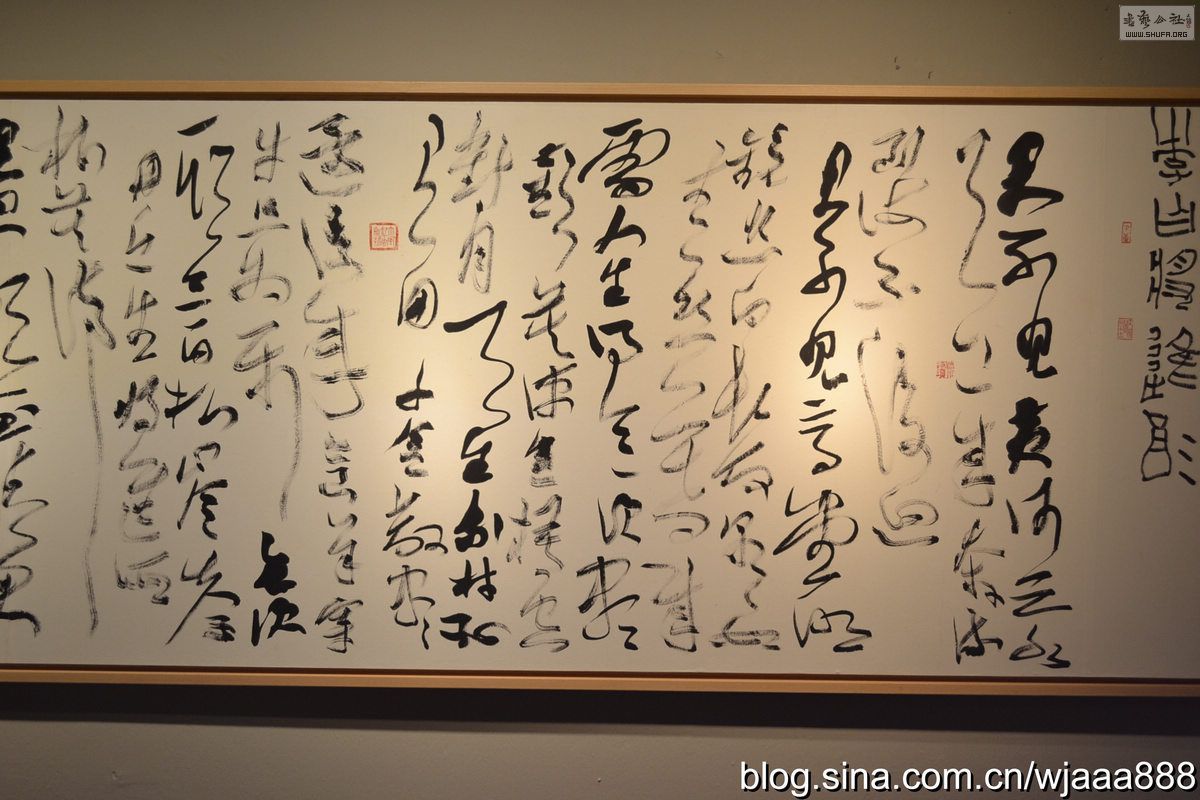 李白將進酒
君不見黃河之水
天上來奔流
到海不復迴
君不見高堂明
鏡悲白髮朝如
青絲暮成
雪人生得意須盡
歡莫使金樽空
對月天生我材必
有用千金散盡
還復來烹羊宰
牛且為樂會須
一飲三百杯岑夫子
丹丘生將進酒
杯莫停
書藝公社
WWW.SHUFA.ORG
blog.sina.com.cn/wjaaa888